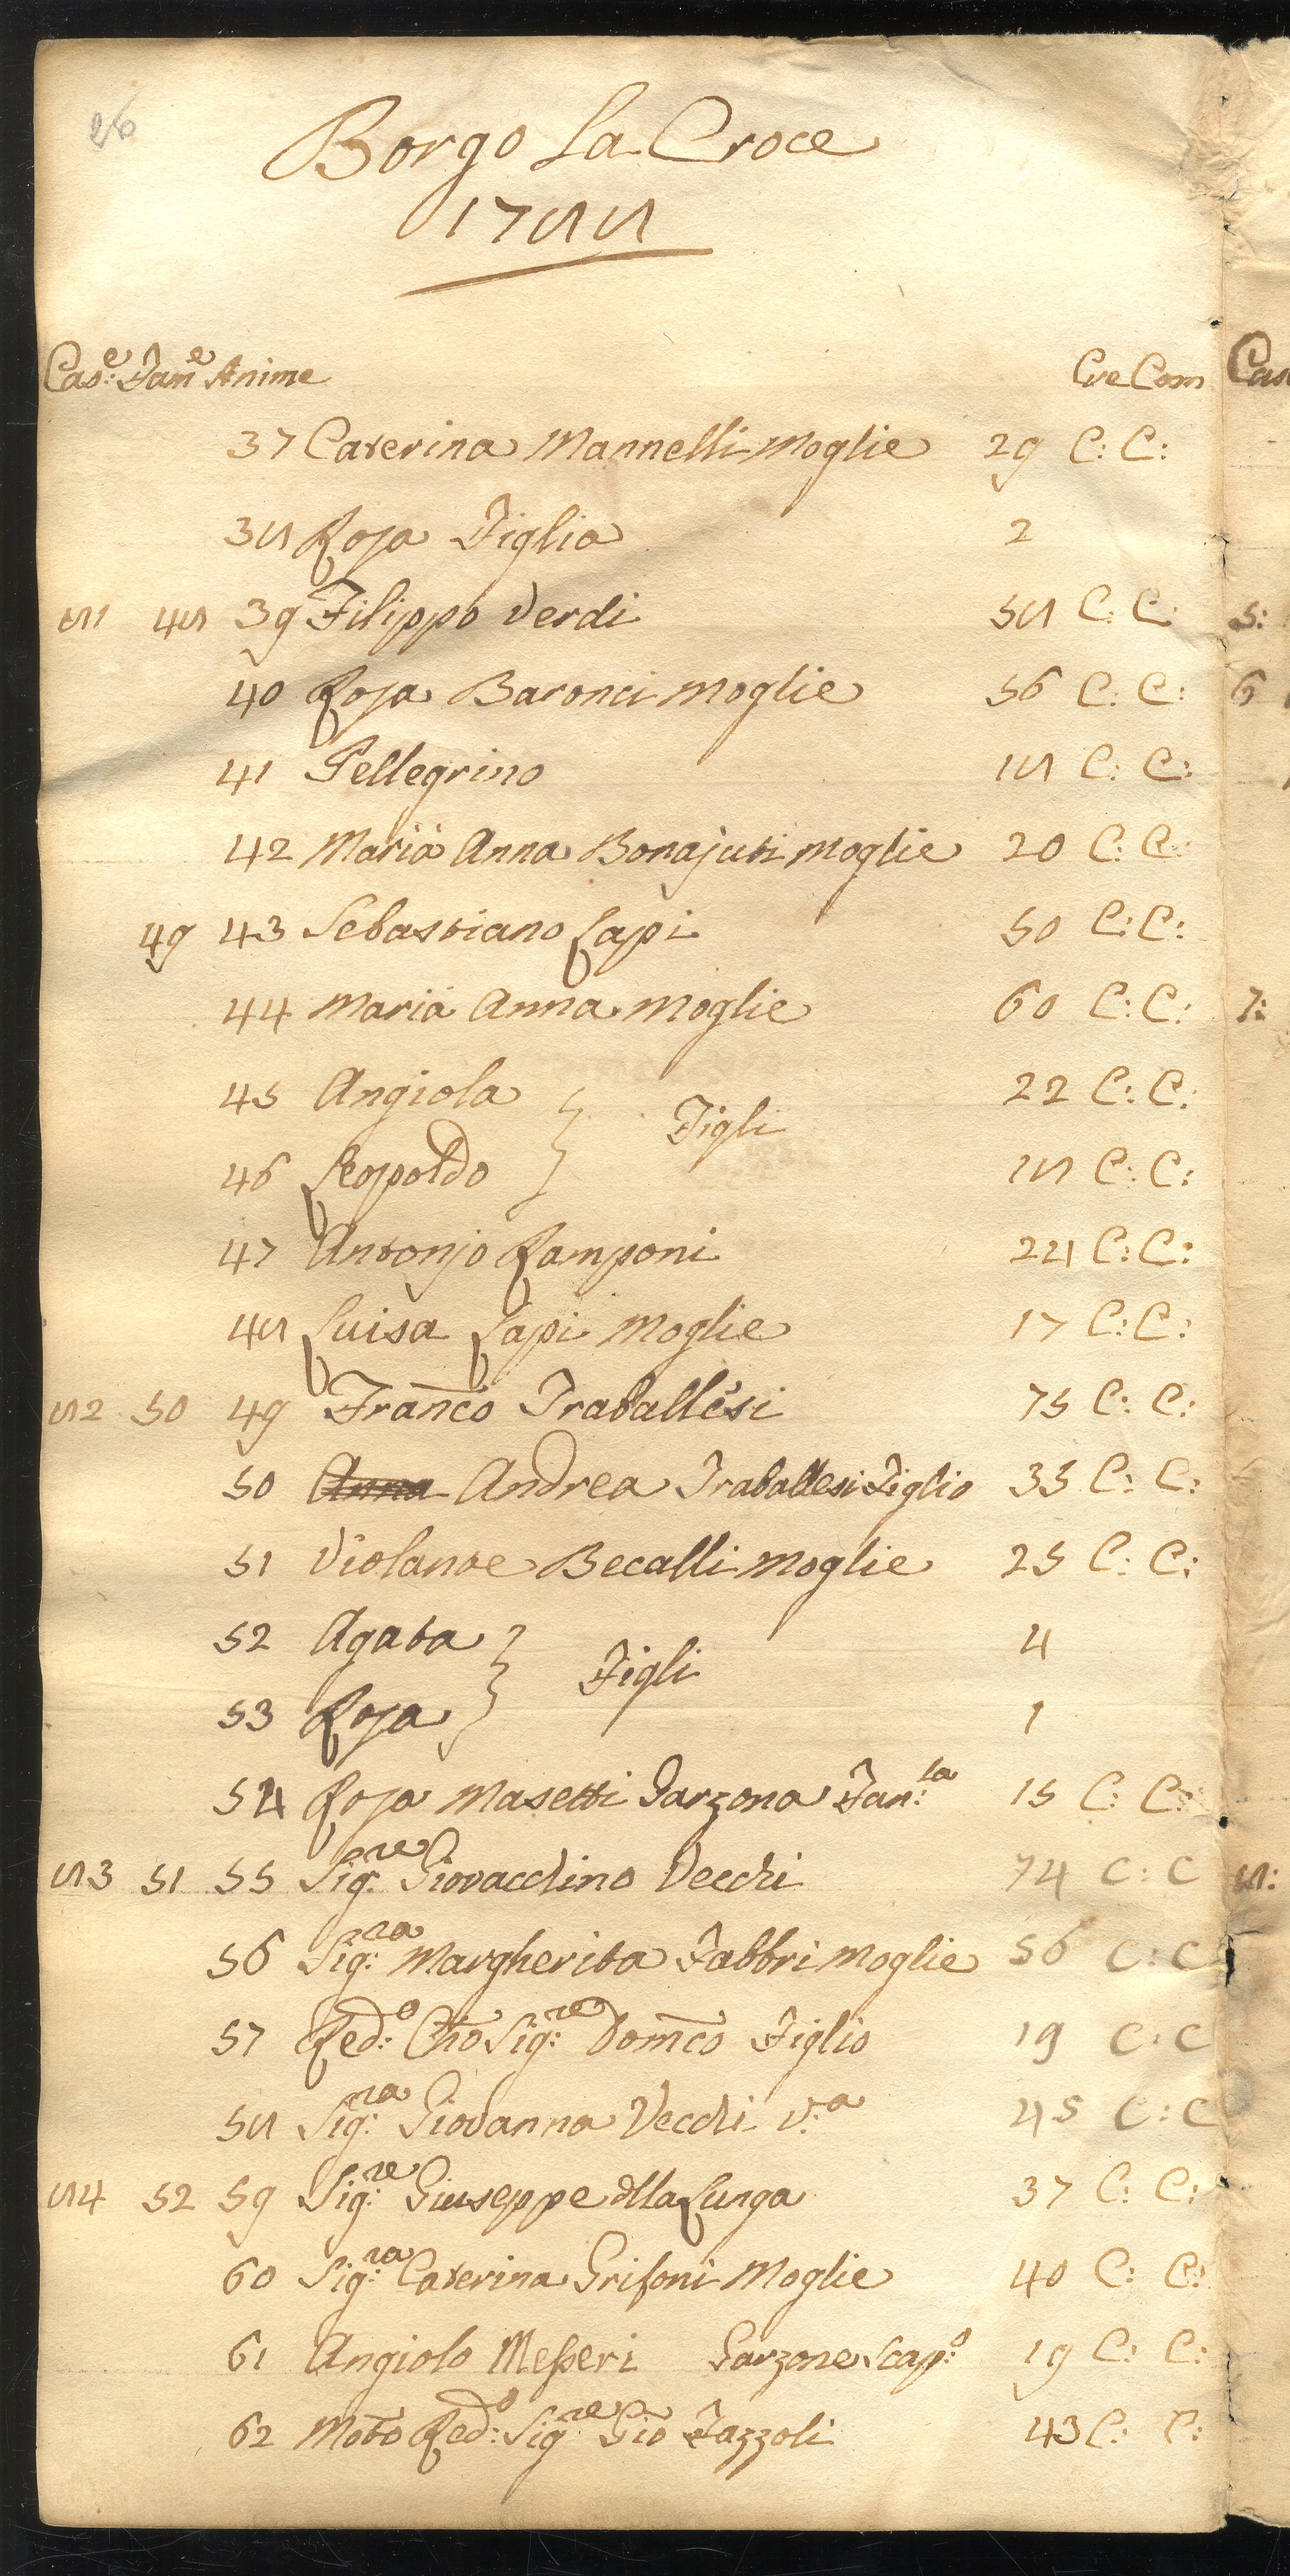 26
Borgo La Croce
1788
Cas:e Fam:e Anime Cre Com
37 Caterina Mannelli Moglie 29 C: C:
38 Rosa Figlia 2
81 48 39 Filippo Verdi 58 C: C:
40 Rosa Baronci Moglie 56 C: C:
41 Pellegrino 18 C: C:
42 Maria Anna Bonajuti Moglie 20 C: C:
49 43 Sebastiano Lapi 50 C: C:
44 Maria Anna Moglie 60 C: C:
45 Angiola } Figli 22 C: C:
46 Leopoldo 18 C: C:
47 Antonjo Ramponi 24 C: C:
48 Luisa Lapi Moglie 17 C: C:
82 50 49 Franco Traballesi 75 C: C:
50 Anna Andrea Traballesi Figlio 33 C: C:
51 Violante Becalli Moglie 25 C: C:
52 Agata } Figli 4
53 Rosa 1
54 Rosa Masetti Garzona Fan:la 15 C: C:
83 51 55 Sig:re Giovacchino Vecchi 74 C: C
56 Sig:ra Margherita Fabbri Moglie 56 C: C
57 Red:o Cho Sig:re Domco Figlio 19 C: C
58 Sig:ra Giovanna Vecchi V:a 45 C: C
84 52 59 Sig:re Giuseppe dlla Lunga 37 C: C:
60 Sig:ra Caterina Grifoni Moglie 40 C: C:
61 Angiolo Messeri Garzone Scap:o 19 C: C:
62 Molto Red:o Sig:re Gio Fazzoli 43 C: C:
Cas
5:
6
7:
8: